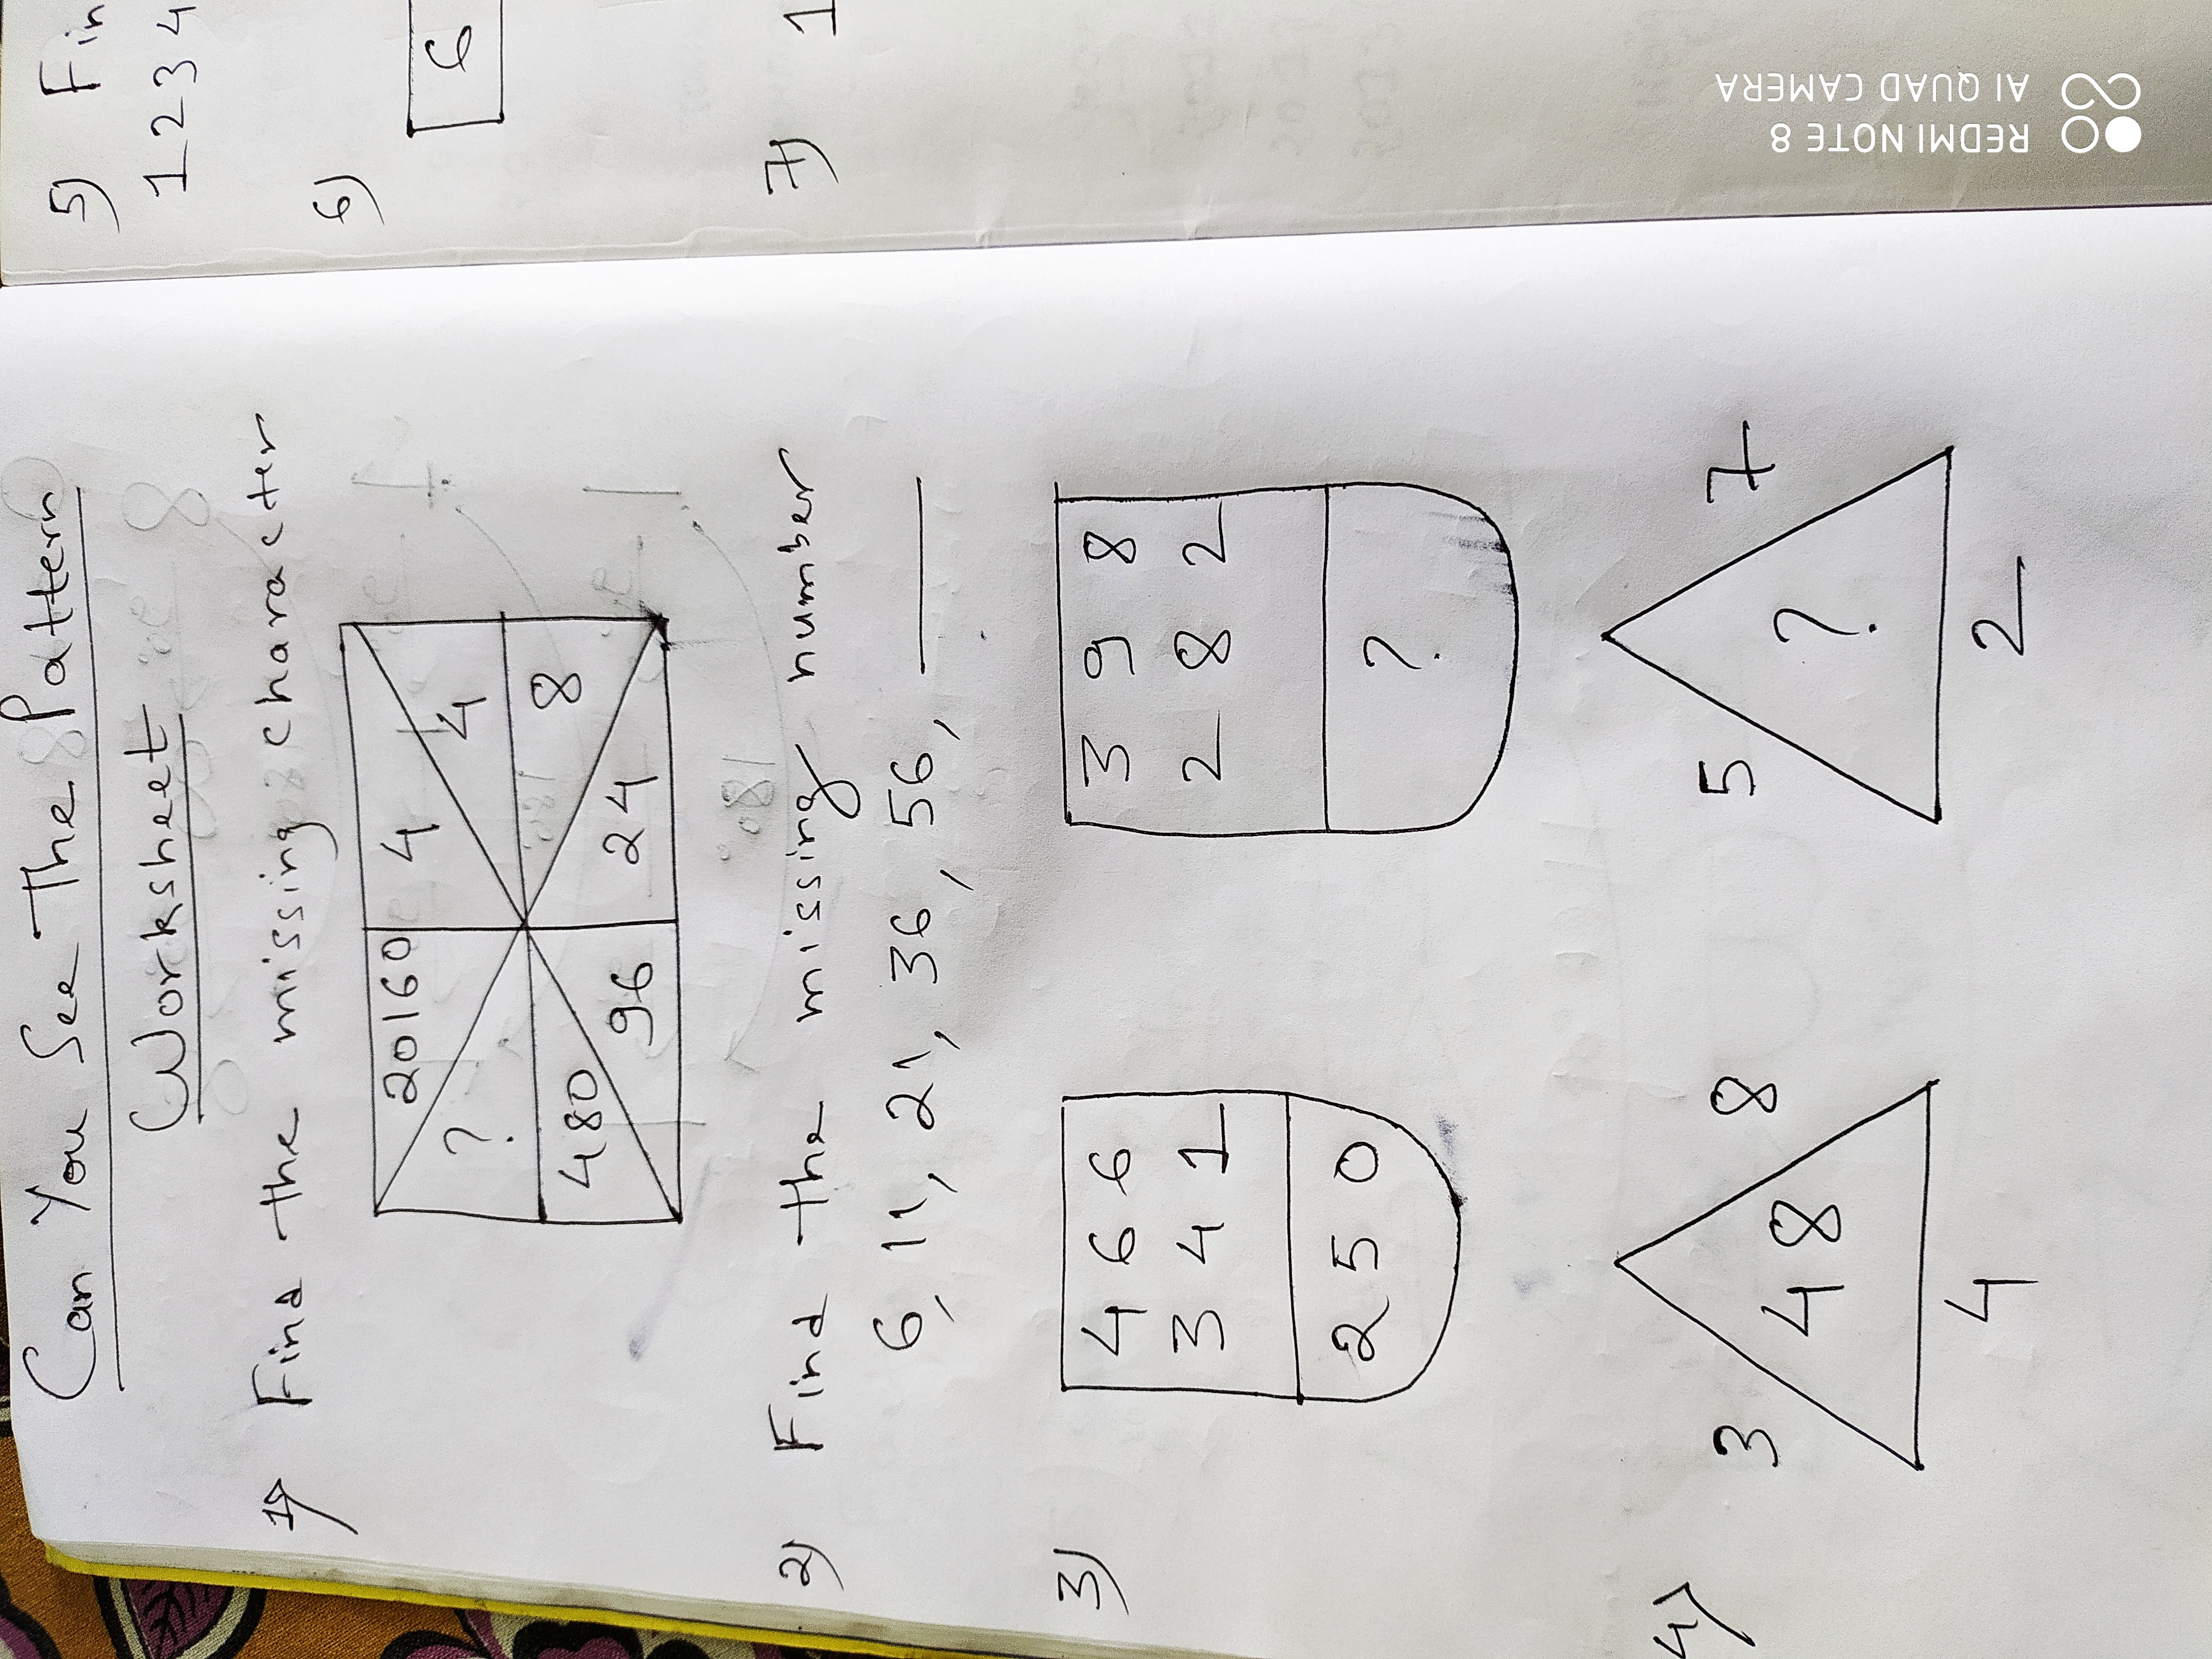 Can You See The Pattern
Worksheet
1) Find the missing character
20160 4
? 4
480 8
96 24
2) Find the missing number
6, 11, 21, 36, 56,
3)
4 6 6
3 4 1
2 5 0
3 9 8
2 8 2
?
4)
3 8
48
4
5 7
?
2
5) Fin
1 2 3 4
6)
6
7) 1
REDMI NOTE 8
AI QUAD CAMERA